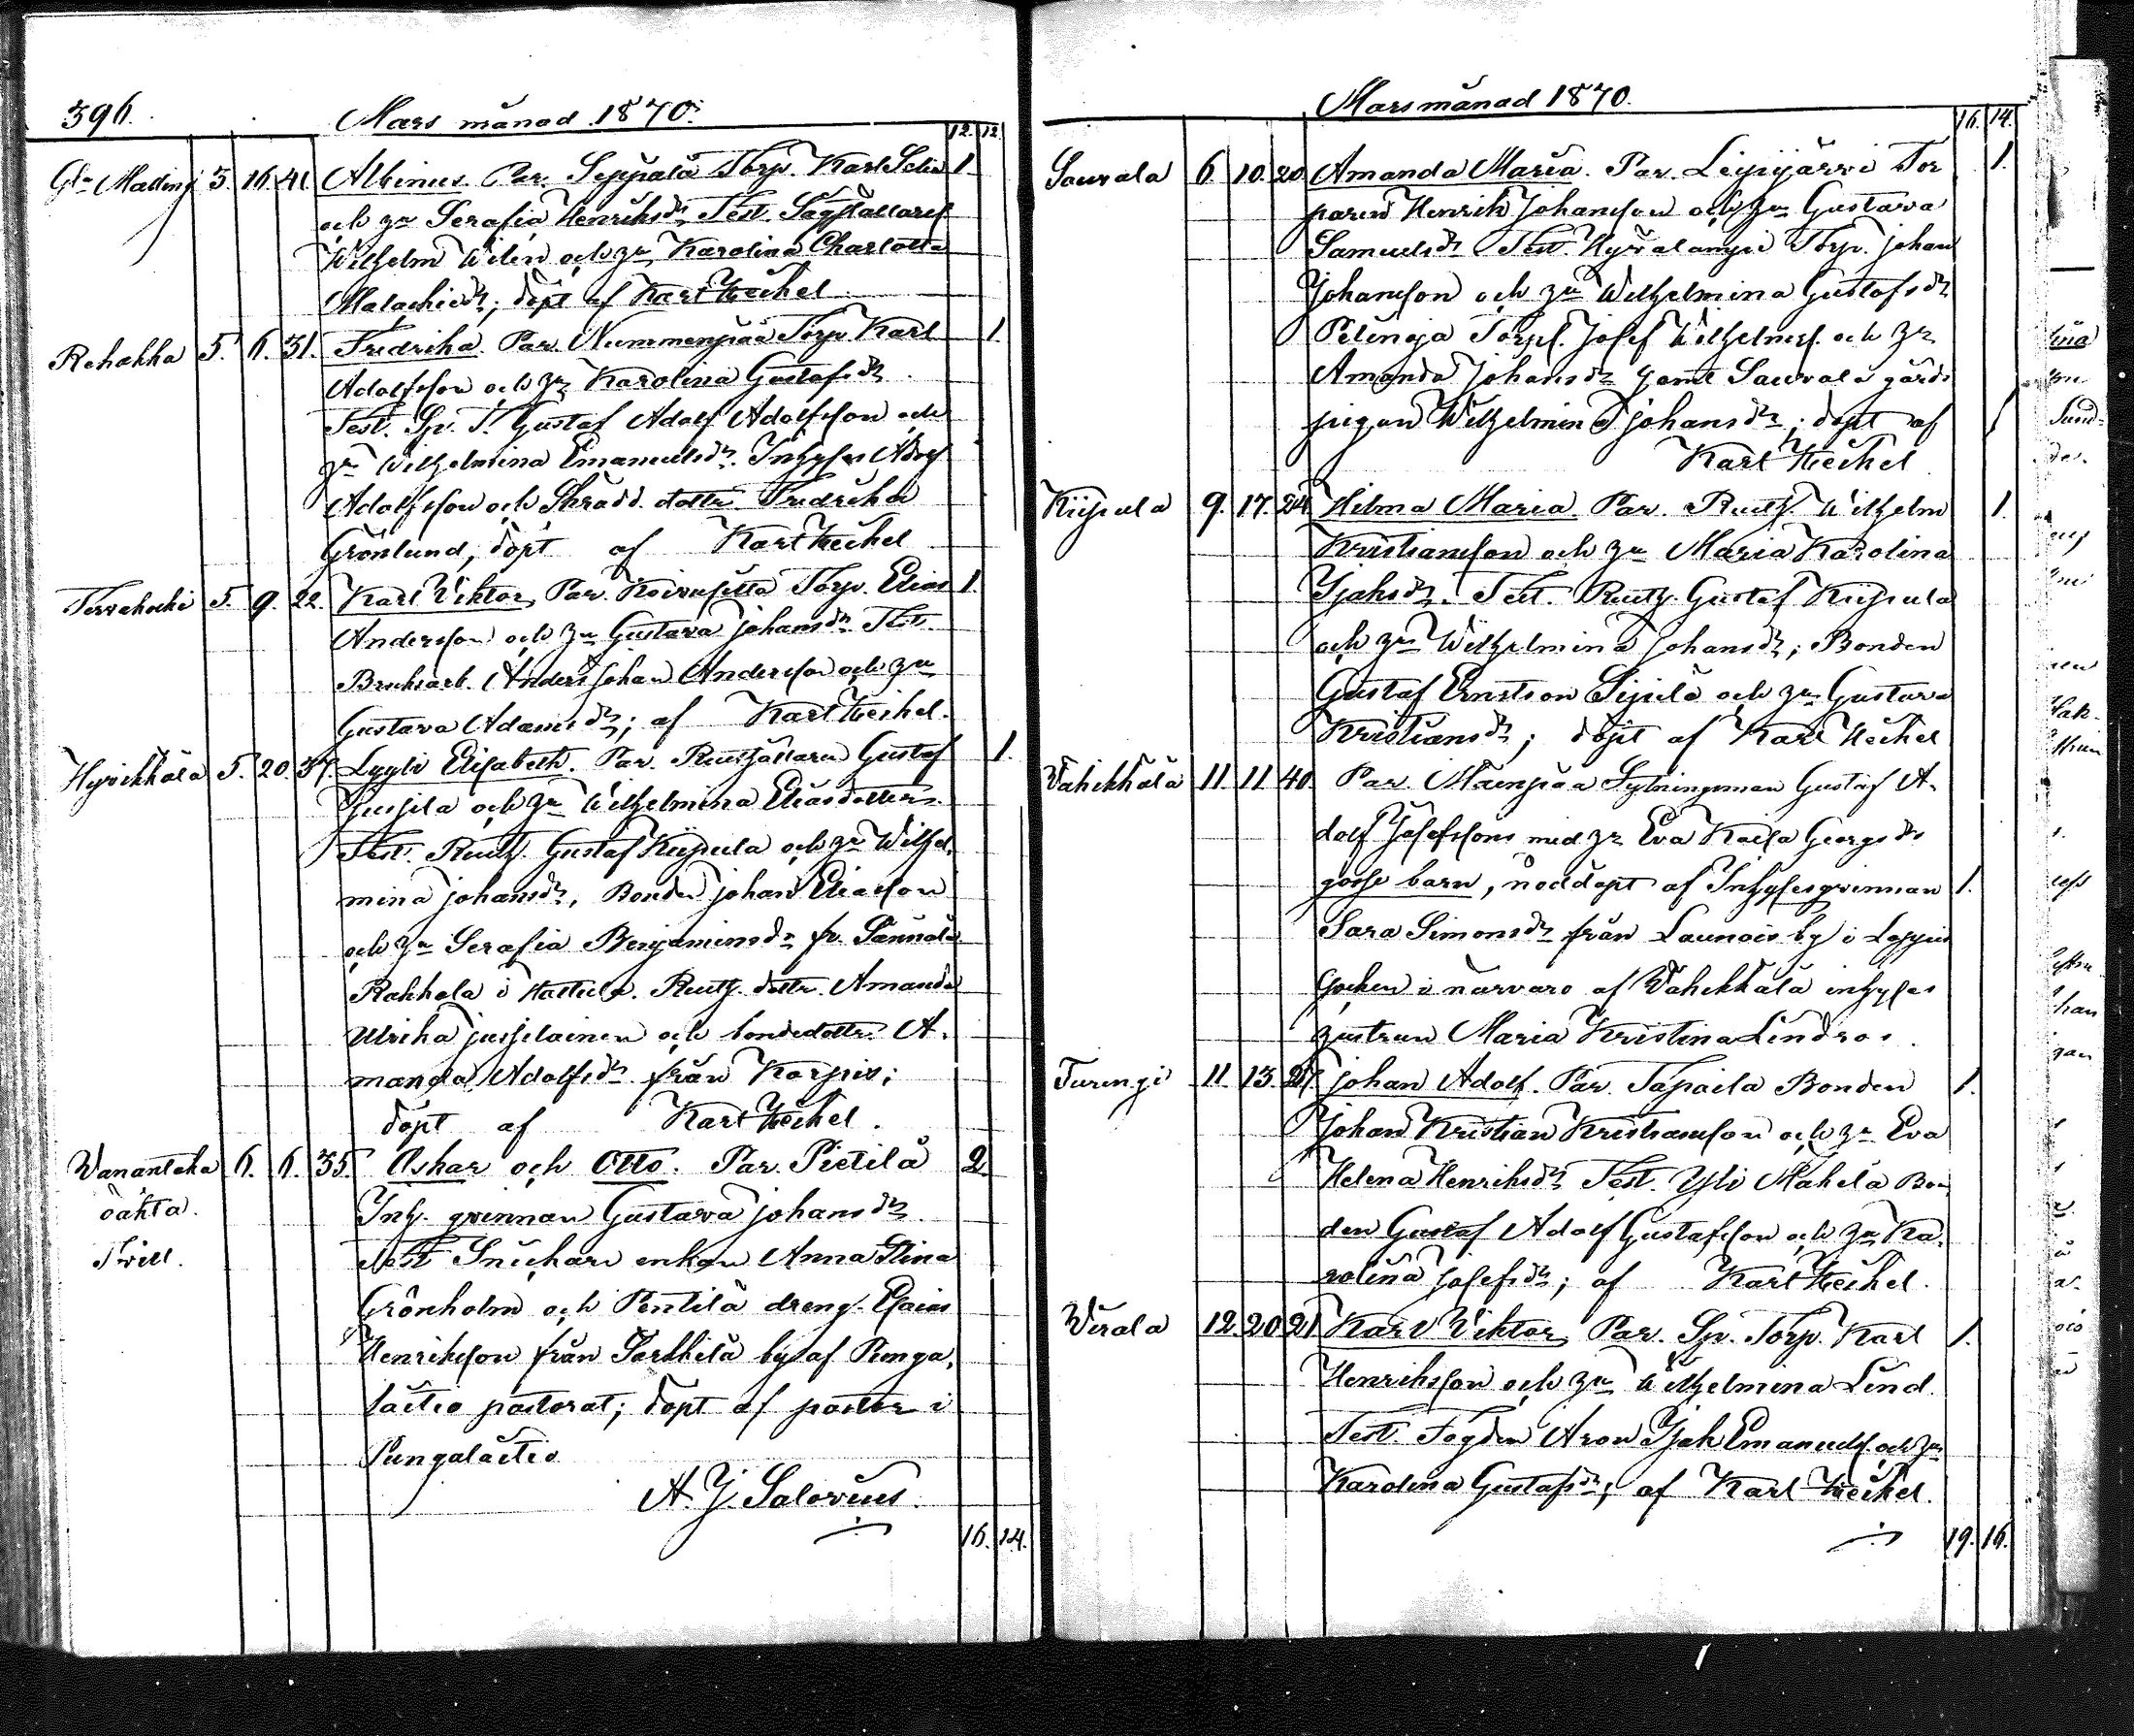 396.
Mars månad 1870.
12. 12.
5. 16. 41. Albinus. Par. Seppälä Torp. Karl 1.
och hu Serafia Henriksdr Test.
Wilhelm Wilen och hu Karolina Charlotta
döpt af Karl Heikel
Rehakka 5. 6. 31. Fredrika. Par. Nummenpää Torp. Karl 1.
Adolfsson och hu Karolina Gustafsdr
Test. Sp. T. Gustaf Adolf Adolfsson och
hu Wilhelmina Emanuelsdr. Inhyses Adolf
Adolfsson och Skrädd. dottr. Fredrika
Grönlund, döpt af Karl Heikel
5. 9. 22. Karl Viktor, Par. Torp. Elias 1.
Andersson och hu Gustava Johansdr Test.
Bruksarb. Anders Johan Andersson och hu
Gustava Adamsdr; af Karl Heikel.
Hyvikkälä 5. 20. Lyyli Elisabeth. Par. Gustaf 1.
Jussila och hu Wilhelmina Eliasdotter.
Test. Rusth. Gustaf Kiipula och hu Wilhel-
mina Johansdr, Bonden Johan Eliasson
och hu Serafia Benjaminsdr fr.
Rahkola i Hattula. Rusth. dottr. Amanda
Ulrika Jussilainen och bondedottr. A-
manda Adolfsdr från Karpis;
döpt af Karl Heikel.
Vanantaka 6. 6. 35. Oskar och Otto. Par. Pietilä 2
oäkta. Inh. qvinnan Gustava Johansdr
Tvill. Test Snickare enkan Anna Stina
Grönholm och Pentilä dreng. Esaias
Henriksson från by af Punga-
laitio pastorat; döpt af pastor i
Pungalaitio
A. J. Salovius.
16. 14.
Mars månad 1870.
16. 14.
Sauvala 6. 10. 20. Amanda Maria. Par. Tor 1.
paren Henrik Johansson och hu Gustava
Samuelsdr Test. Torp. Johan
Johansson och hu Wilhelmina Gustafsdr
Torpf. Josef Wilhelmsf. och hu
Amanda Johansdr samt Sauvala gårds
pigan Wilhelmina Johansdr; döpt af
Karl Heikel
Kiipula 9. 17. 24. Hilma Maria. Par. Rusth. Wilhelm 1.
Kristiansson och hu Maria Karolina
Isaksdr. Test. Rusth. Gustaf Kiipula
och hu Wilhelmina Johansdr; Bonden
Gustaf Ernstson Sipilä och hu Gustava
Kristiansdr; döpt af Karl Heikel
Vahikkälä 11. 11. 40. Par. Mäenpää Sytningsman Gustaf A-
dolf Josefssons med hu Eva Kaisa Georgsdr
gosse barn, nöddöpt af Inhysesqvinnan 1.
Sara Simonsdr från Launois by i Loppis
Socken i närvaro af Vahikkälä inhyses
hustrun Maria Kristina Lindros.
Turengi 11. 13. Johan Adolf. Par. Tapaila Bonden 1.
Johan Kristian Kristiansson och hu Eva
Helena Henriksdr Test. Yli Mäkelä Bon
den Gustaf Adolf Gustafsson och hu Ka-
rolina Josefsdr; af Karl Heikel.
Virala 12. 20. 21 Karl Viktor, Par. Sp. Torp. Karl 1.
Henriksson och hu Wilhelmina Lind.
Test. Fogden Aron Isak Emanuelsf. och hu
Karolina Gustafsdr; af Karl Heikel.
19. 16.